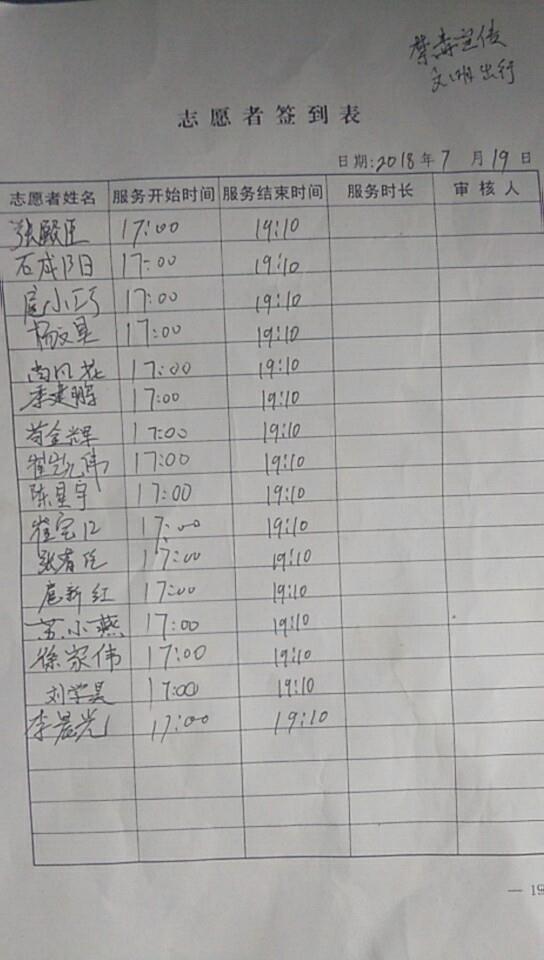 禁毒宣传
文明出行
志愿者签到表
日期:2018年7月19日
志愿者姓名 服务开始时间 服务结束时间 服务时长 审核人
张殿臣 17:00 19:10
石成阳 17:00 19:10
扈小巧 17:00 19:10
杨文昊 17:00 19:10
尚风花 17:00 19:10
李建辉 17:00 19:10
苟金辉 17:00 19:10
崔岩伟 17:00 19:10
陈星宇 17:00 19:10
崔宝江 17:00 19:10
张春 17:00 19:10
扈新红 17:00 19:10
苏小燕 17:00 19:10
徐家伟 17:00 19:10
刘学昊 17:00 19:10
李晨光 17:00 19:10
— 19